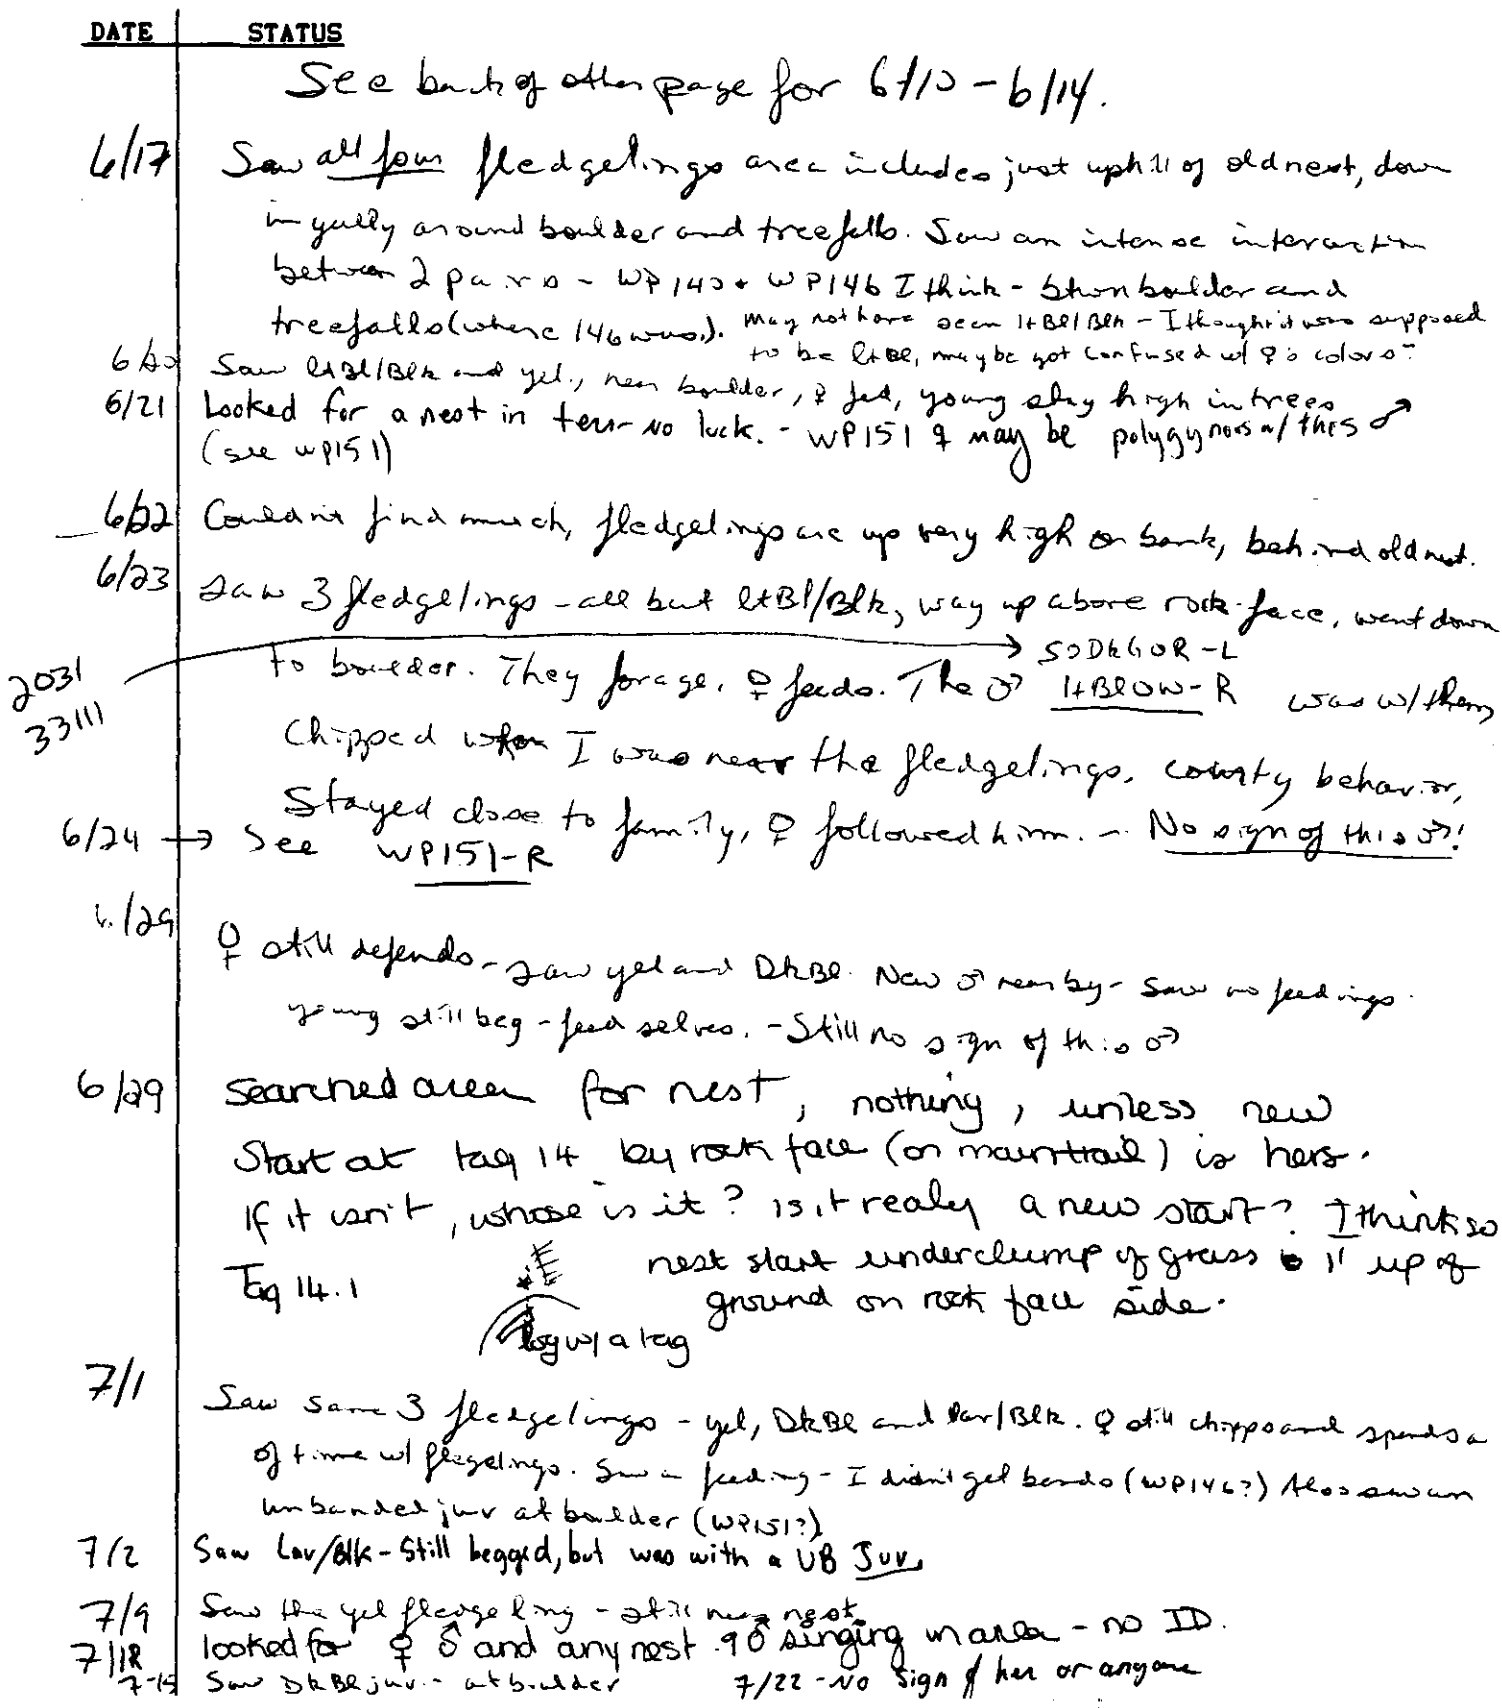 DATE STATUS
See back of other page for 6/10 - 6/14.
6/17 Saw all four fledgelings area includes just uphill of old nest, down
in gully around boulder and treefalls. Saw an intense interaction
between 2 pairs - WP140 + WP146 I think - btwn boulder and
treefalls (where 146 was). May not have seen ltBl/Blk - I thought it was supposed
to be ltBl, maybe got confused w/ ♀'s colors.
6/20 Saw ltBl/Blk and yel., near boulder, ♀ fed, young stay high in trees
6/21 Looked for a nest in terr - no luck. - WP151 ♀ may be polygynous w/ this ♂
(see WP151)
6/22 Couldn't find much, fledgelings are up very high on bank, behind old nest.
6/23 Saw 3 fledgelings - all but ltBl/Blk, way up above rock face, went down
2031
33111
to boulder. They forage, ♀ feeds. The ♂ SODkGOR-L
ltBlOW-R was w/ them,
Chipped when I was near the fledgelings, courty behavior,
Stayed close to family, ♀ followed him. - No sign of this ♂!
6/24 → See WP151-R
6/29 ♀ still defends - saw yel and DkBl. New ♂ nearby - Saw no feedings.
young still beg - feed selves. - Still no sign of this ♂
6/29 Searched area for nest, nothing, unless new
Start at tag 14 by rock face (on main trail) is hers.
If it isn't, whose is it? Is it realy a new start? I think so
Tag 14.1
nest start under clump of grass 1" up of
ground on rock face side.
log w/ a tag
7/1 Saw same 3 fledgelings - yel, DkBl and Lav/Blk. ♀ still chipps and spends a
of time w/ flegelings. Saw a feeding - I didn't get bands (WP146?) Also saw an
unbanded juv at boulder (WP151?)
7/2 Saw Lav/Blk - Still begged, but was with a UB Juv.
7/9 Saw the yel fledgeling - still near nest.
7/18 looked for ♀ ♂ and any nest. ♂ singing in area - no ID.
7-15 Saw DkBl juv. - at boulder 7/22 - No sign of her or anyone